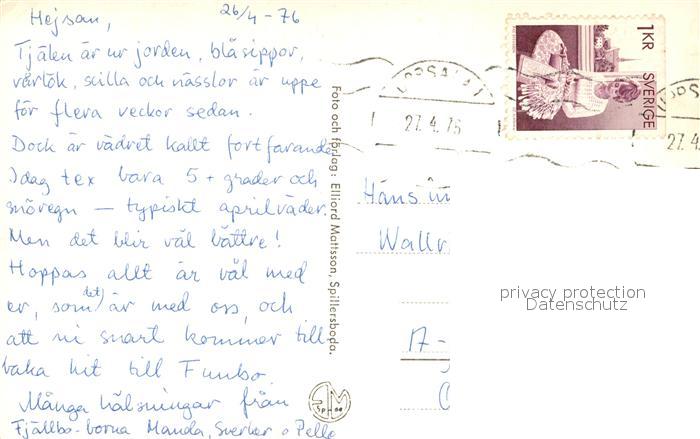 26/4 - 76
Hejsan,
Tjälen är ur jorden, blåsippor,
vårlök, scilla och nässlor är uppe
för flera veckor sedan.
Dock är vädret kallt fortfarande
Idag tex bara 5+ grader och
snöregn — typiskt aprilväder.
Men det blir väl bättre!
Hoppas allt är väl med
er, som (det) är med oss, och
att ni snart kommer till
baka hit till Funbo.
Många hälsningar från
Fjällbo-borna Manda, Sverker o Pelle
Foto och förlag: Elliard Mattsson, Spillersboda.
UPPSALA 1
27.4.76
1 KR SVERIGE
27.4
Wallr
A-
privacy protection
Datenschutz